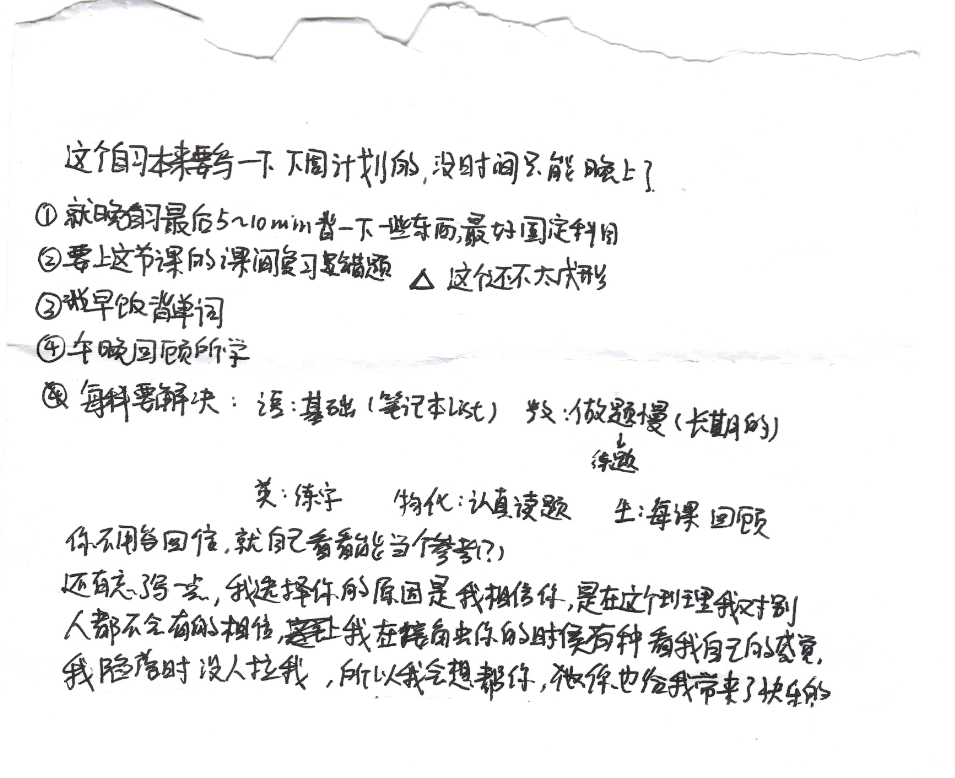 这个自习本来要写一下下周计划的,没时间只能晚上了
①就晚自习最后5~10min背一下一些东西,最好固定科目
②要上这节课的课间复习错题 △ 这个还不太成形
③早饭背单词
④午晚回顾所学
⑤每科要解决: 语:基础(笔记本List) 数:做题慢(长期的)
↓
练题
英:练字 物化:认真读题 生:每课回顾
你不用写回信,就自己看看能当个参考(?)
还有忘了写一点,我选择你的原因是我相信你,是在这个班里我对别
人都不会有的相信,我在接触你的时候有种看我自己的感觉,
我堕落时没人拉我,所以我会想帮你,你也给我带来了快乐的